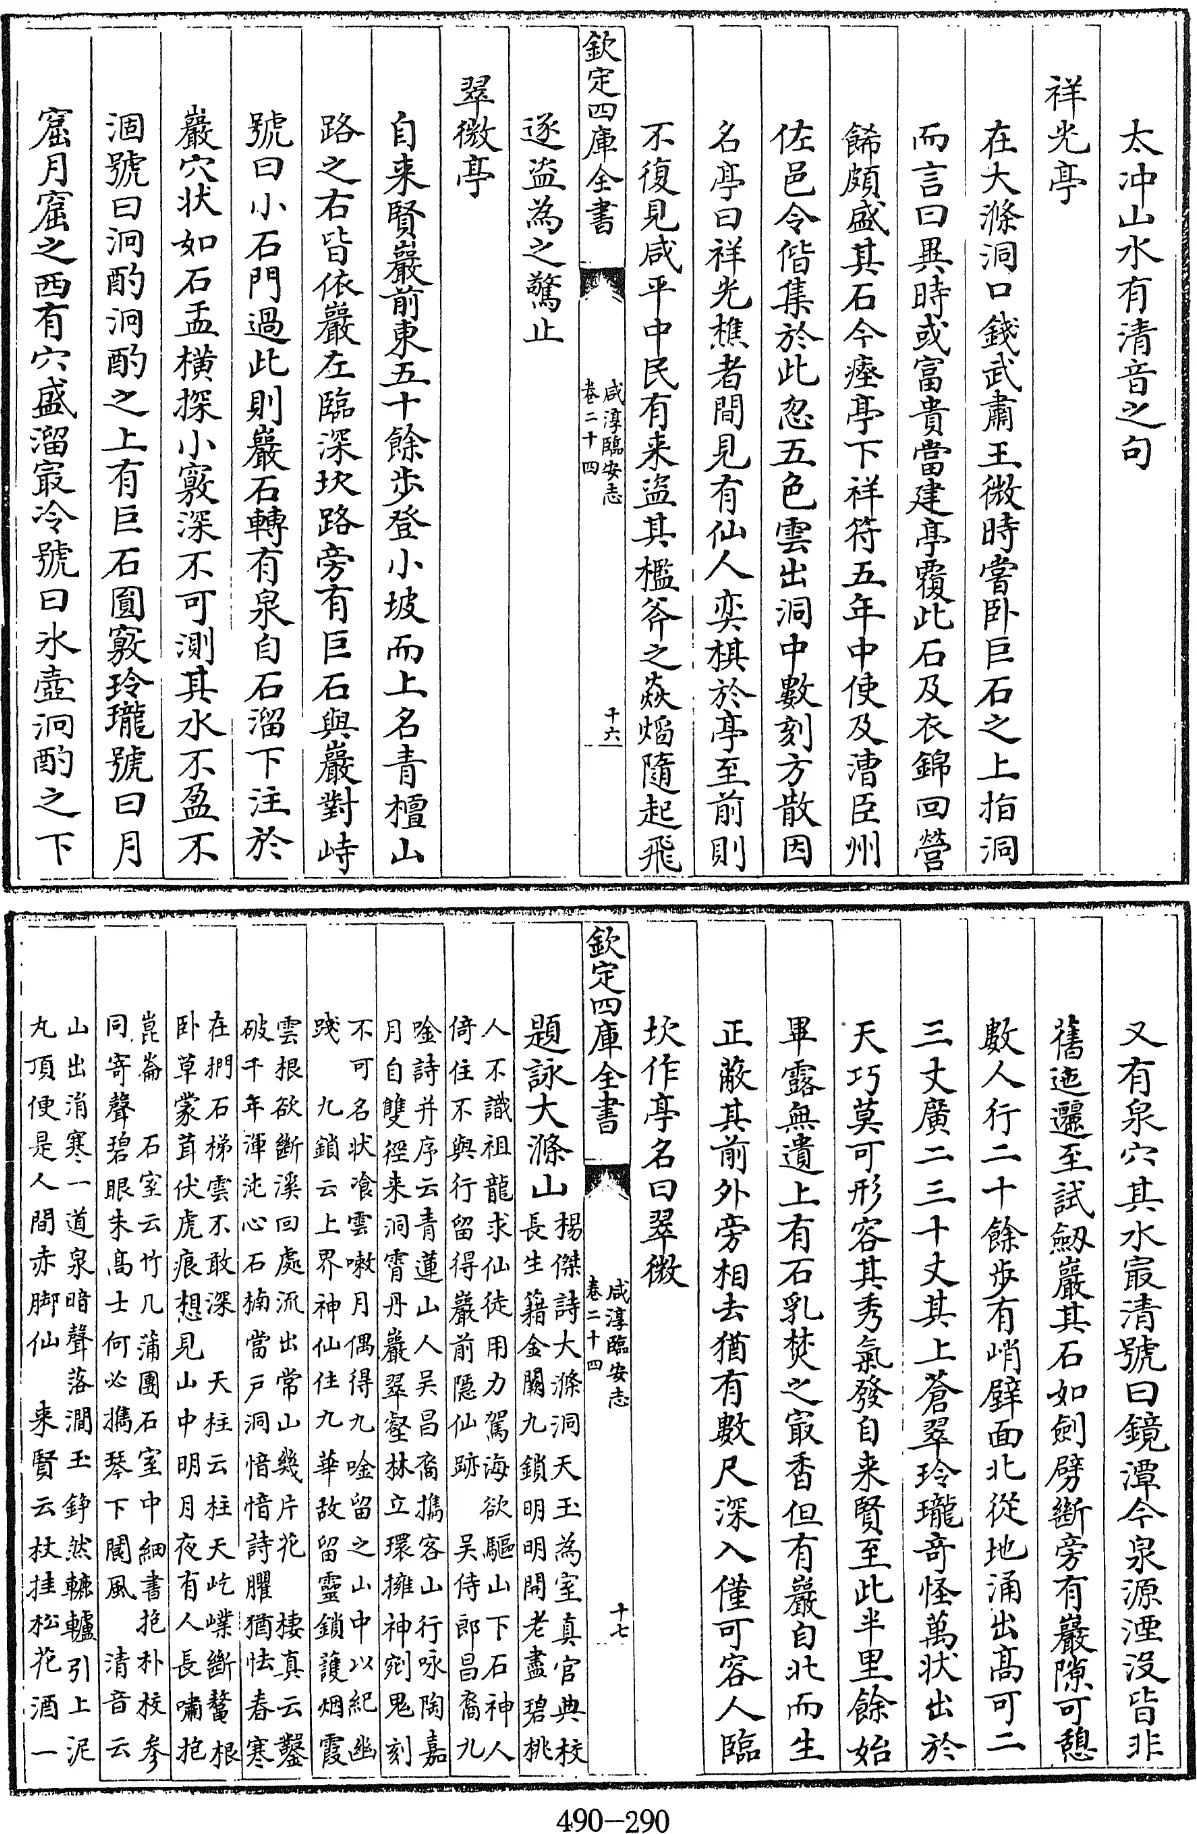 太冲山水有清音之句
祥光亭
在大滌洞口錢武肅王微時嘗卧巨石之上指洞
而言曰異時或富貴當建亭覆此石及衣錦回營
餙頗盛其石今瘞亭下祥符五年中使及漕臣州
佐邑令偕集於此忽五色雲出洞中數刻方散因
名亭曰祥光樵者間見有仙人奕棋於亭至前則
不復見咸平中民有来盗其檻斧之焱熖隨起飛
欽定四庫全書
咸淳臨安志
卷二十四
十六
遂盗為之驚止
翠微亭
自来賢巖前東五十餘步登小坡而上名青檀山
路之右皆依巖左臨深坎路旁有巨石與巖對峙
號曰小石門過此則巖石轉有泉自石溜下注於
巖穴状如石盂橫探小竅深不可測其水不盈不
涸號曰泂酌泂酌之上有巨石圓竅玲瓏號曰月
窟月窟之西有穴盛溜㝡冷號曰氷壺泂酌之下
又有泉穴其水㝡清號曰鏡潭今泉源湮没皆非
舊迤邐至試劒巖其石如劍劈斷旁有巖隙可憩
數人行二十餘步有峭壁面北從地涌出高可二
三丈廣二三十丈其上蒼翠玲瓏竒怪萬状出於
天巧莫可形容其秀氣發自来賢至此半里餘始
畢露無遺上有石乳焚之㝡香但有巖自北而生
正蔽其前外旁相去猶有數尺深入僅可容人臨
坎作亭名曰翠微
欽定四庫全書
咸淳臨安志
卷二十四
十七
題詠大滌山
楊傑詩大滌洞天玉為室真官典校
長生籍金闕九鎖明明開老盡碧桃
人不識祖龍求仙徒用力駕海欲驅山下石神人
倚住不與行留得巖前隠仙跡 吴侍郎昌裔九
唫詩并序云青蓮山人吴昌裔攜客山行咏陶嘉
月自雙徑来洞霄丹巖翠壑林立環擁神剜鬼刻
不可名状飡雲嗽月偶得九唫留之山中以紀幽
踐 九鎖云上界神仙住九華故留靈鎖護烟霞
雲根欲斷溪回處流出常山幾片花 棲真云鑿
破千年渾沌心石楠當户洞愔愔詩臞猶怯春寒
在捫石梯雲不敢深 天柱云柱天屹嶪斷鼇根
卧草蒙茸伏虎痕想見山中明月夜有人長嘯抱
崑崙 石室云竹几蒲團石室中細書抱朴校參
同寄聲碧眼朱髙士何必攜琴下閬風 清音云
山出消寒一道泉暗聲落澗玉錚然轆轤引上泥
丸頂便是人間赤脚仙 来賢云杖挂松花酒一
490-290